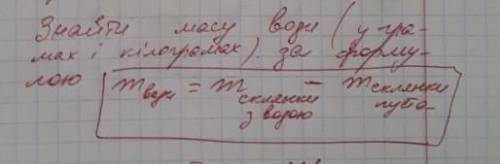 Знайти масу води (у гра-
мах і кілограмах) за форму-
лою
m води = m склянки з водою - m склянки пуста